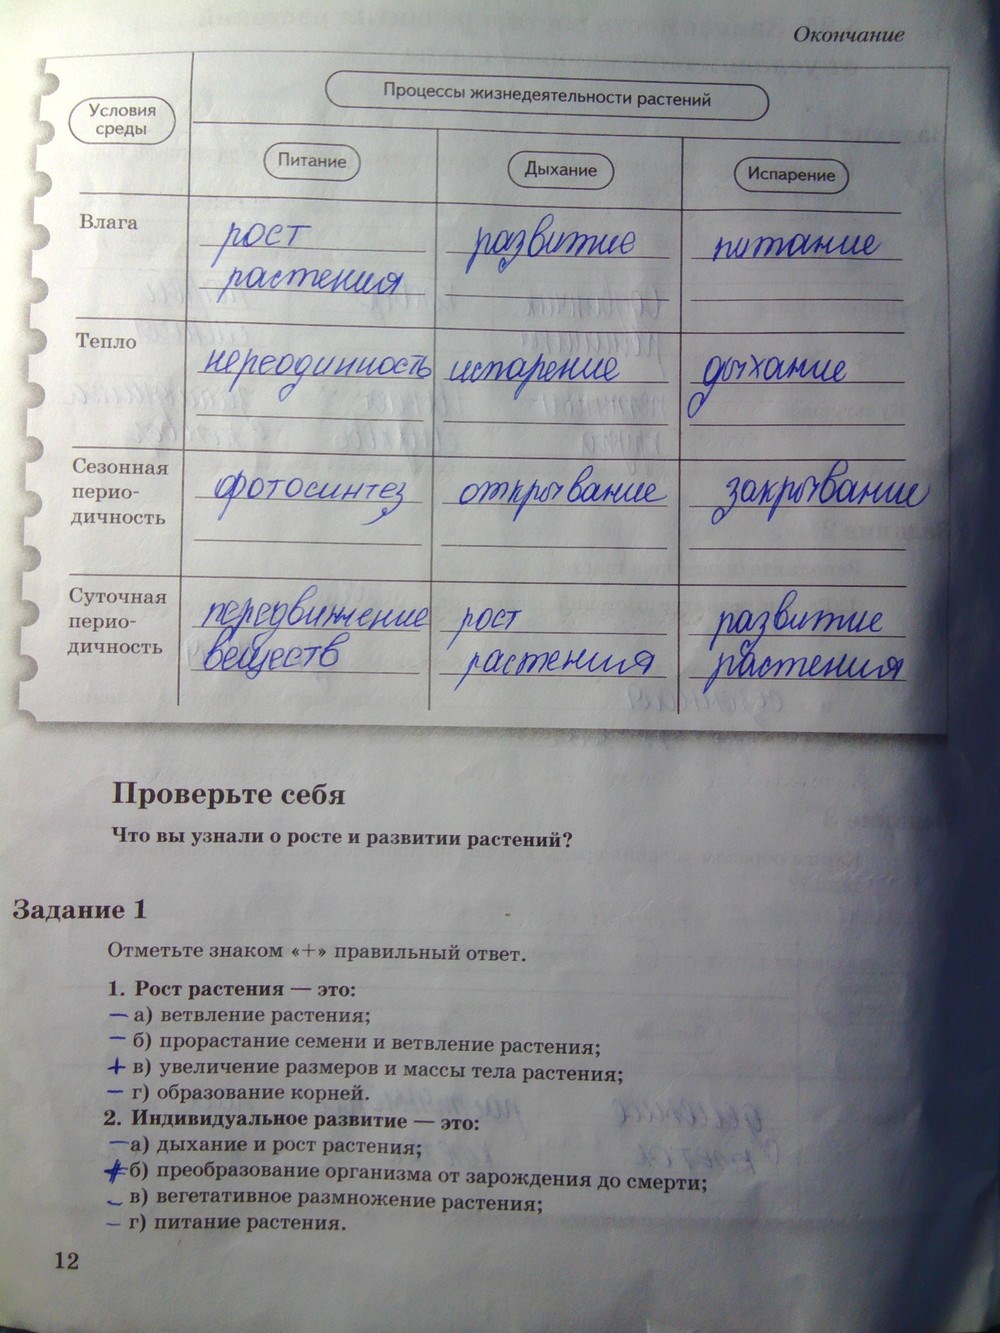 Окончание
Условия
среды
Процессы жизнедеятельности растений
Питание
Дыхание
Испарение
Влага
рост
растения
развитие
питание
Тепло
переодичность
испарение
дыхание
Сезонная
перио-
дичность
фотосинтез
открывание
закрывание
Суточная
перио-
дичность
передвижение
веществ
рост
растения
развитие
растения
Проверьте себя
Что вы узнали о росте и развитии растений?
Задание 1
Отметьте знаком «+» правильный ответ.
1. Рост растения — это:
– а) ветвление растения;
– б) прорастание семени и ветвление растения;
+ в) увеличение размеров и массы тела растения;
– г) образование корней.
2. Индивидуальное развитие — это:
– а) дыхание и рост растения;
+ б) преобразование организма от зарождения до смерти;
– в) вегетативное размножение растения;
– г) питание растения.
12